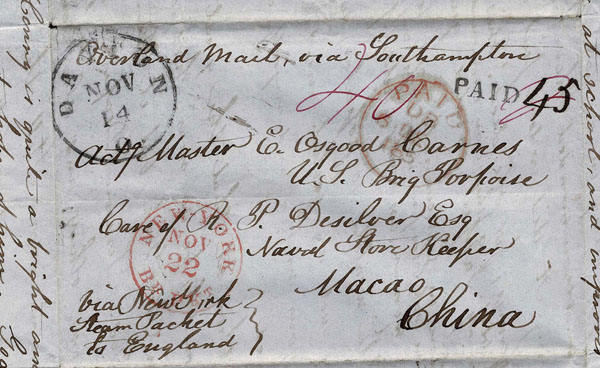 Overland Mail, via Southampton
DA N
NOV
14
40
PAID
PAID 45
Actg Master E. Osgood Carnes
U.S. Brig Porpoise
Care of R. P. Desilver Esq
Naval Store Keeper
NEW YORK
NOV
22
Macao
China
via New York
Steam Packet
to England
at school, and improves
Conny is quite a bright